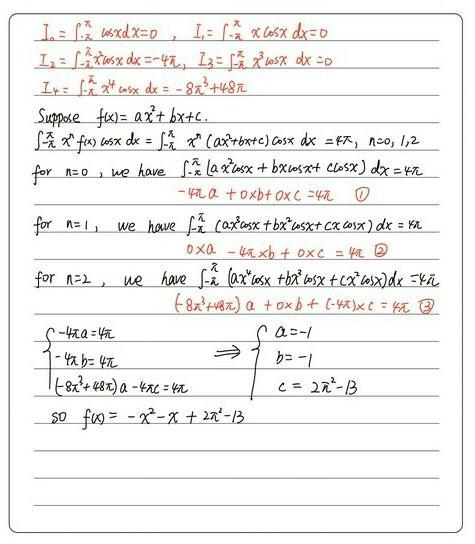 I₀ = ∫_{-π}^{π} cosx dx = 0 , I₁ = ∫_{-π}^{π} x cosx dx = 0
I₂ = ∫_{-π}^{π} x² cosx dx = -4π, I₃ = ∫_{-π}^{π} x³ cosx dx = 0
I₄ = ∫_{-π}^{π} x⁴ cosx dx = -8π³+48π
Suppose f(x) = ax²+bx+c.
∫_{-π}^{π} xⁿ f(x) cosx dx = ∫_{-π}^{π} xⁿ (ax²+bx+c) cosx dx = 4π, n=0,1,2
for n=0 , we have ∫_{-π}^{π} (ax²cosx + bxcosx + ccosx) dx = 4π
-4πa + 0×b + 0×c = 4π ①
for n=1, we have ∫_{-π}^{π} (ax³cosx + bx²cosx + cxcosx) dx = 4π
0×a - 4π×b + 0×c = 4π ②
for n=2, we have ∫_{-π}^{π} (ax⁴cosx + bx³cosx + cx²cosx) dx = 4π
(-8π³+48π) a + 0×b + (-4π)×c = 4π ③
{ -4πa = 4π ⇒ { a = -1
-4πb = 4π b = -1
(-8π³+48π)a - 4πc = 4π c = 2π²-13
so f(x) = -x²-x+2π²-13